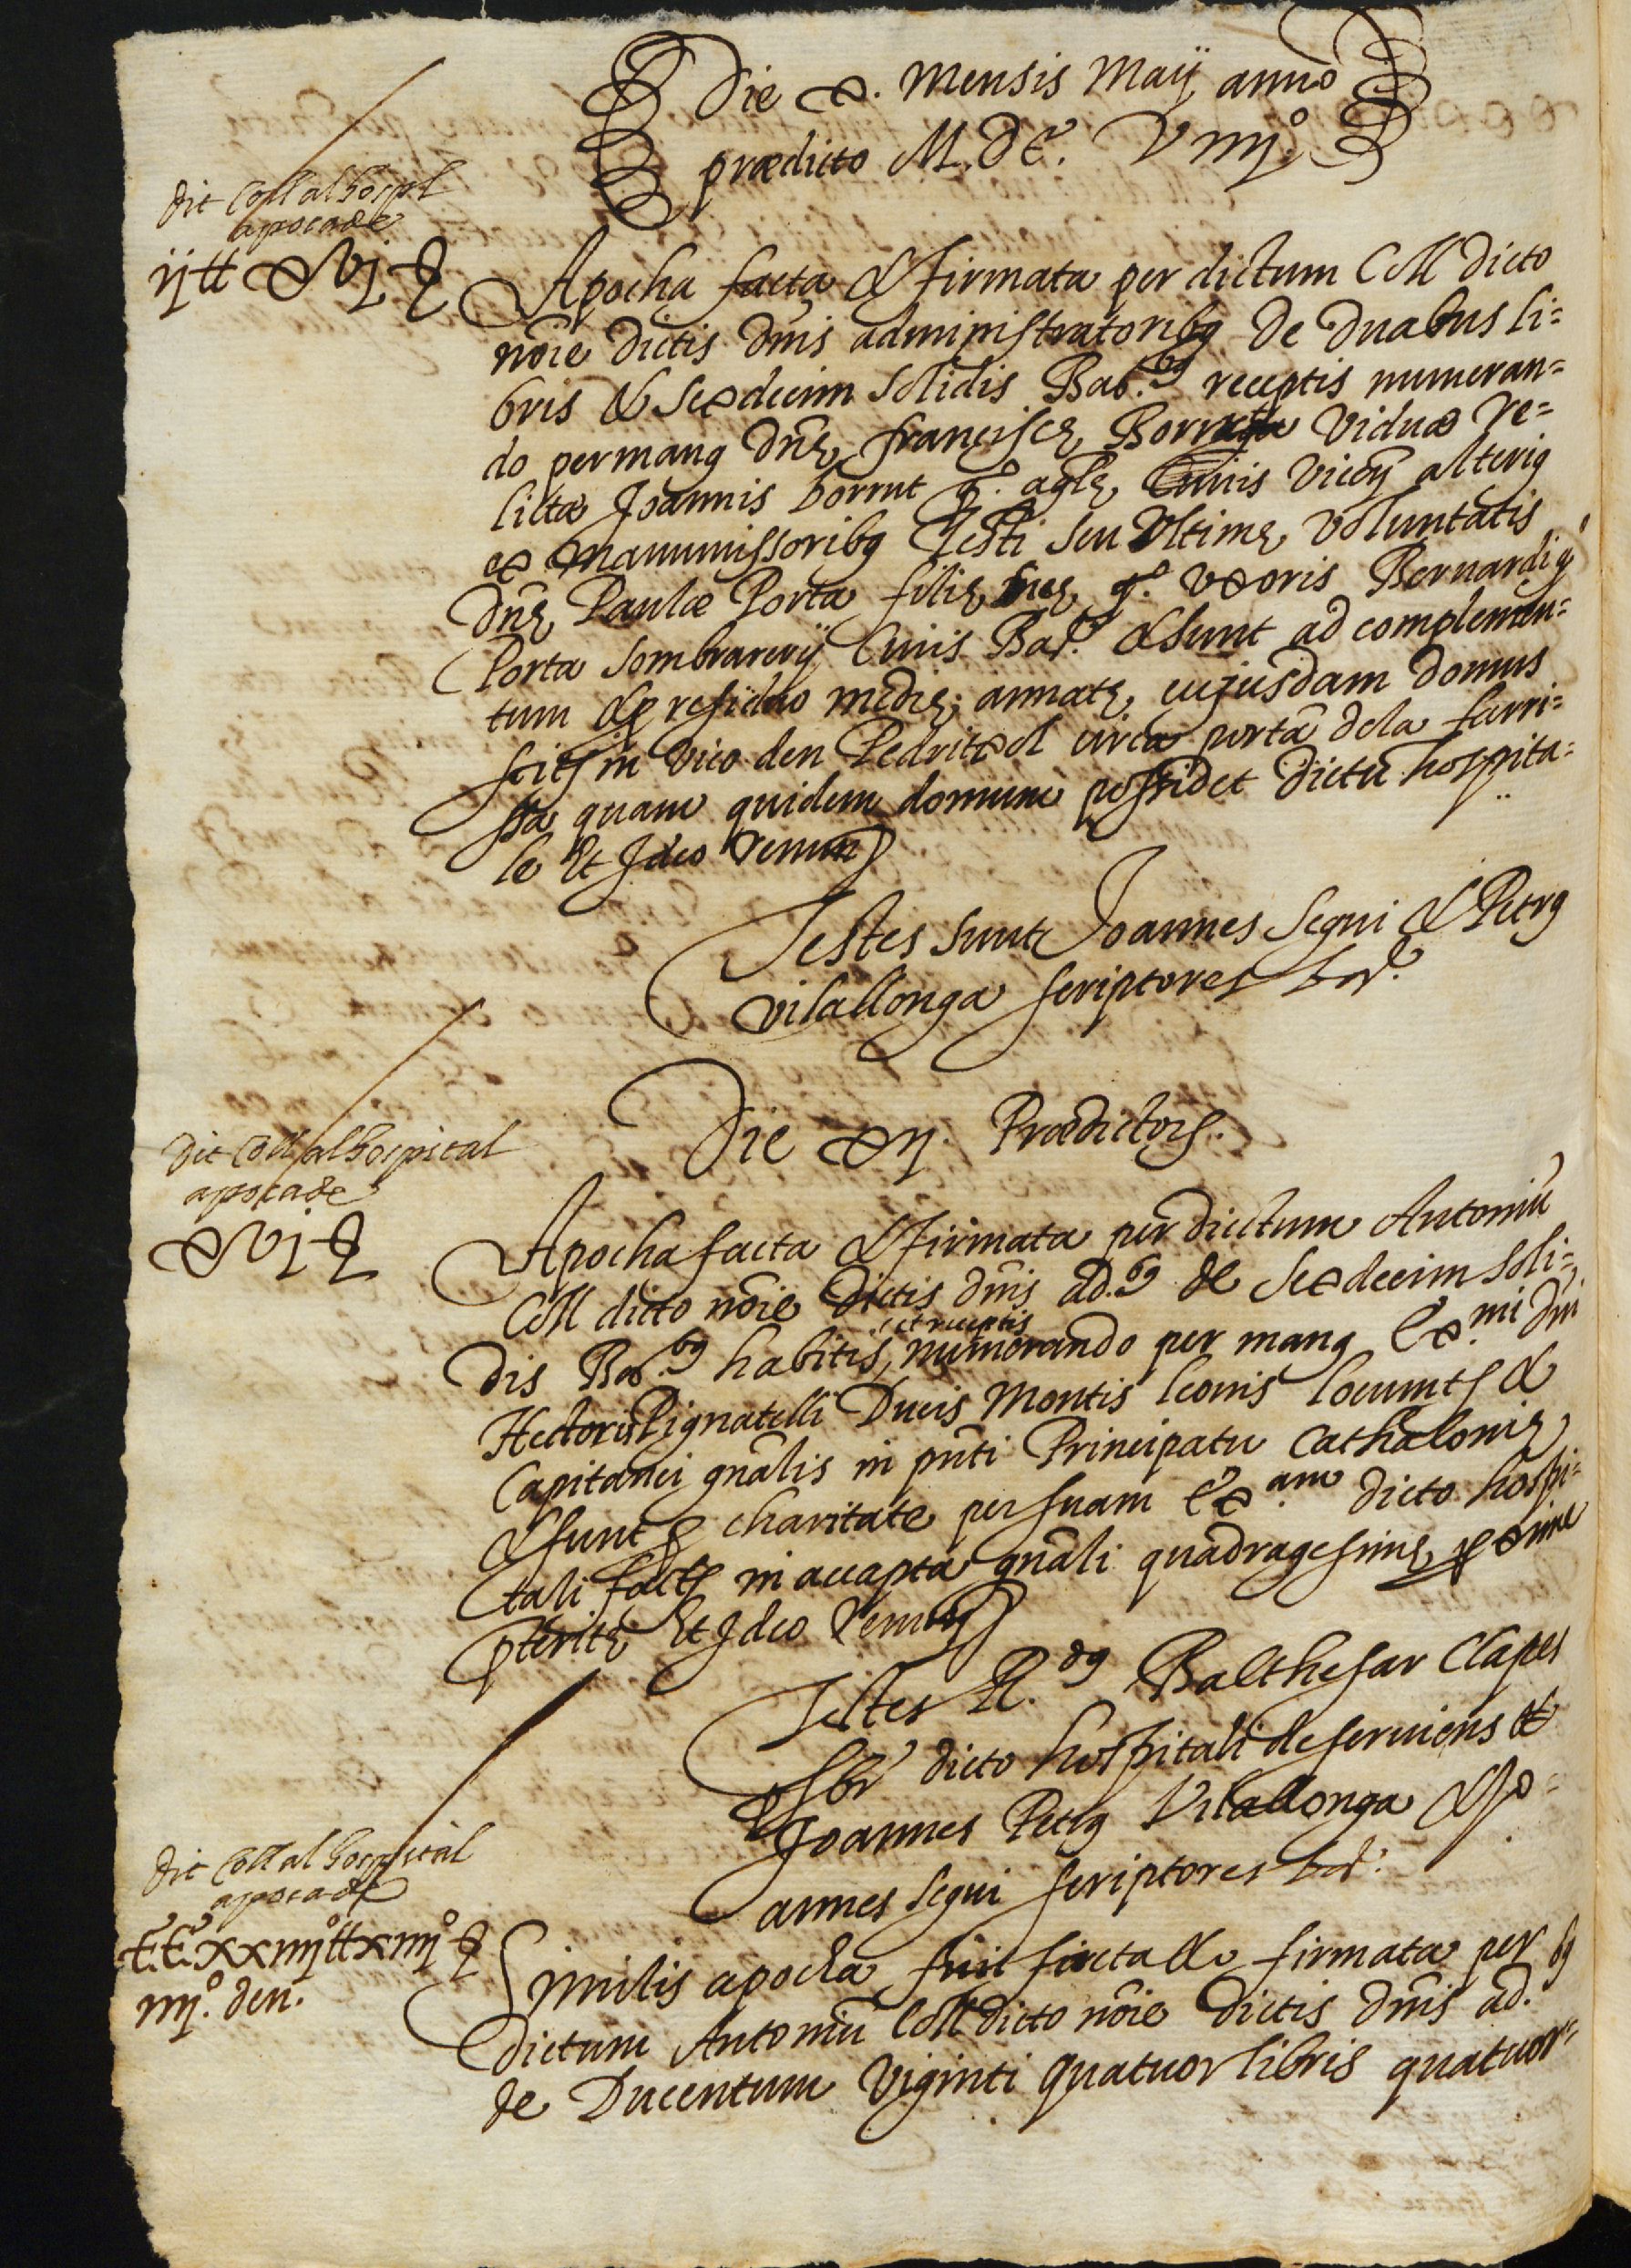 Die x. Mensis Maij anno
prædicto M. Dc. Viiijº.
dit Coll al hospl
apoca de
ij ll xvj s
Apocha facta & firmata per dictum Coll dicto
noie dictis dnis administratoribq de duabus li=
bris & sexdecim solidis Bar.bq receptis numeran=
do per manq dnę francisce Borruta Viduæ re=
lictæ Joannis borrut qº. Civis alteriq
ex manumissoribq Testi seu Vltimę voluntatis
dnę Paulæ Porta filię suę qº. vxoris Bernardi
Porta sombrarerij Civis Bar. & sunt ad complemen=
tum & residuo medię annatę cujusdam domus
in vico den Pedritxol circa portã dela ferri=
ssa quam quidem domum possidet dictũ hospita=
le Et Ideo Renun
Testes sunt Joannes Segui & Petrq
vilallonga scriptores bar.
Die xij. Prædictorȝ.
dit Coll al hospital
apoca de
xvj s
Apocha facta & firmata per dictum Antoniũ
Coll dicto noie dictis dnis ad.bq de sexdecim soli=
dis Bar.bq habitis, et receptis numerando per manq Ex.mi dni
Hectoris Pignatelli Ducis Montis leonis locumts &
Capitanei gnalis in pnti Principatu Cathalonię
& sunt ꝑ charitate per suam Ex.am dicto hospi=
tali in accapta gnali quadragesimę
pteritę Et Ideo Renun
Testes R.dq Balthesar Clapes
pbr dicto hospitali deseruiens &
Joannes Petrq Vilallonga & Jo=
annes Segui scriptores bar.
dit Coll al hospital
apoca de
CCxxiiijº ll xiiijº s
iiij. den.
Similis apocha fuit facta & firmata per
dictum Antoniũ Coll dicto noie dictis dnis ad.bq
de Ducentum Viginti quatuor libris quatuor=